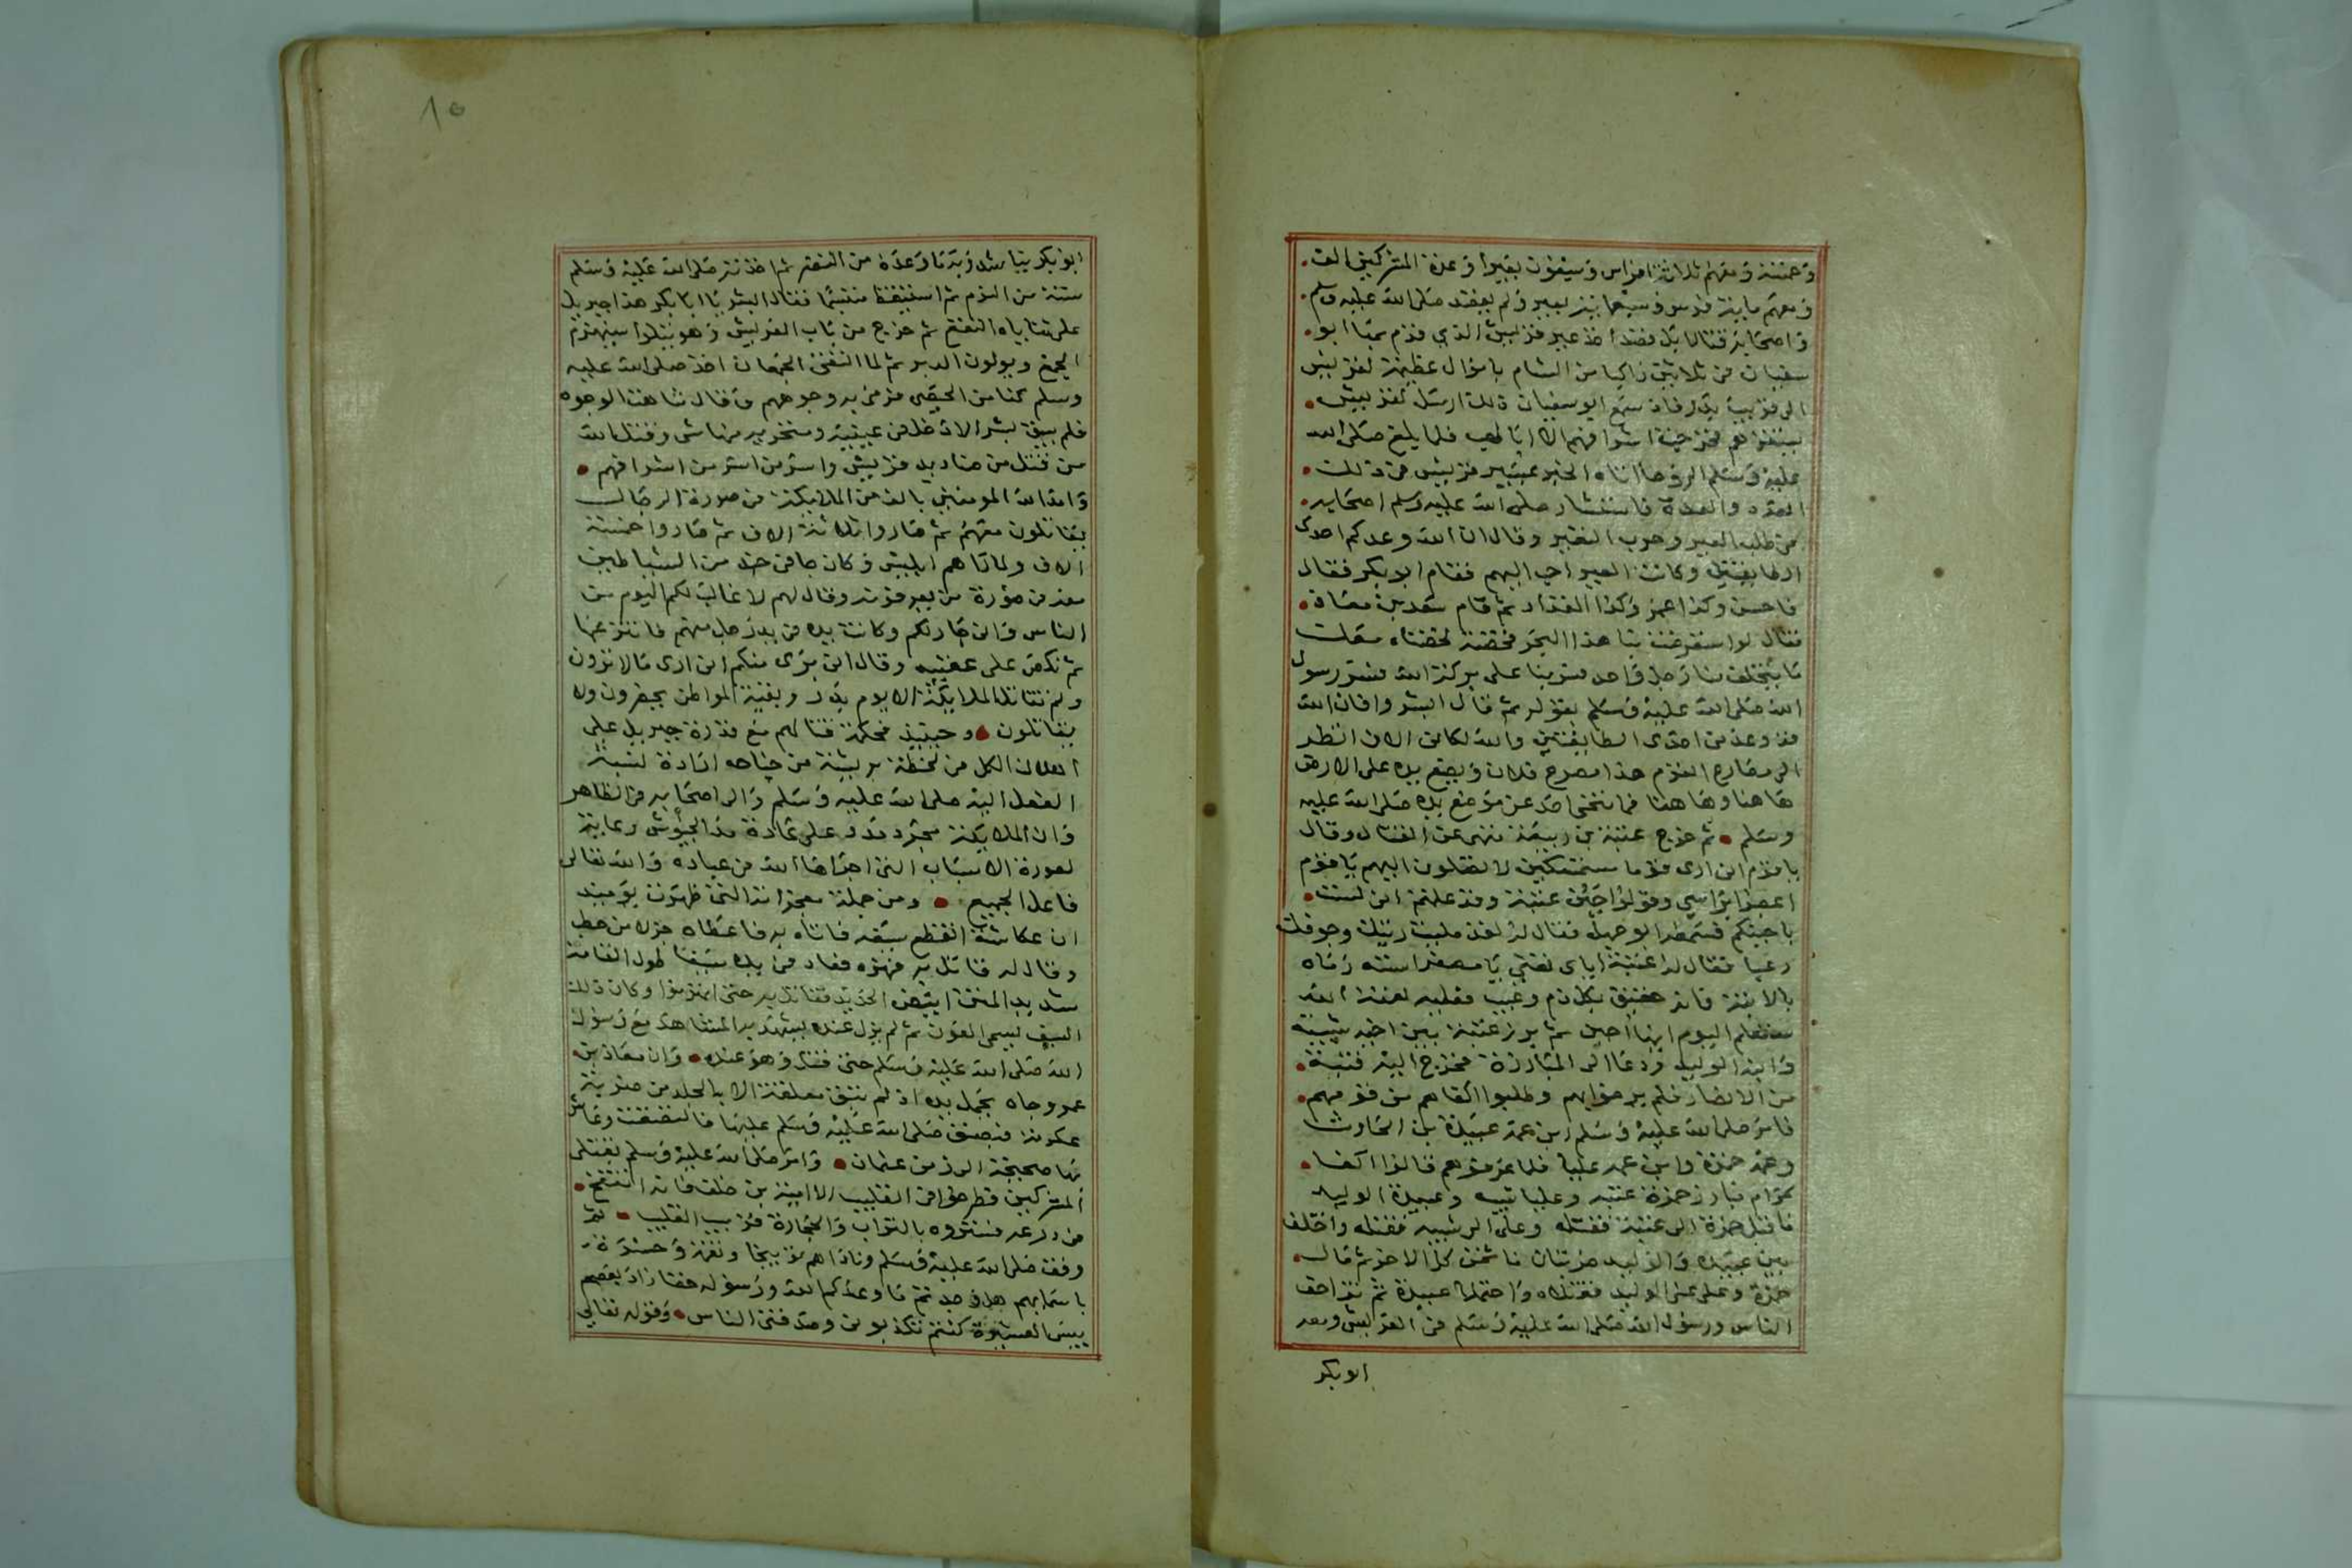 وخمسة ومعهم ثلاثة افراس وسبعون بعيرا وعدة المشركين الف
ومعهم ماية فرس وسبعماية بعير ولم يقصد صلى الله عليه وسلم
واصحابه قتالا بل قصد اخذ عير قريش الذي قدم بها ابو
سفيان في ثلاثين راكبا من الشام باموال عظيمة لقريش
الى قريب بدر فلما سمع ابو سفيان ذلك ارسل لقريش
يستنفرهم فخرجت اشرافهم الا ابا لهب فلما بلغ صلى الله
عليه وسلم الروحا اتاه الخبر بمسير قريش في ذلك
العدد والعدة فاستشار صلى الله عليه وسلم اصحابه
في طلب العير وحرب النفير وقال ان الله وعدكم احدى
الطايفتين وكانت العير احب اليهم فقام ابو بكر فقال
فاحسن وكذا عمر وكذا المقداد ثم قام سعد بن معاذ
فقال لو استعرضت بنا هذا البحر فخضته لخضناه معك
ما يتخلف منا رجل واحد فسر بنا على بركة الله فسر رسول
الله صلى الله عليه وسلم بقوله ثم قال ابشروا فان الله
قد وعدني احدى الطايفتين والله لكاني الان انظر
الى مصارع القوم هذا مصرع فلان ويضع يده على الارض
هاهنا وهاهنا فما تنحى احد عن موضع يده صلى الله عليه
وسلم ثم خرج عتبة بن ربيعة ينهى عن القتال وقال
يا قوم اني ارى قوما مستمسكين لا تصلون اليهم يا قوم
اعصبوا براسي وقولوا جبن عتبة وقد علمتم اني لست
باجبنكم فسمعه ابو جهل فقال له لقد مليت رئتك وجوفك
رعبا فقال له عتبة اياي تعني يا مصفر استه رماه
بالابنة فانه حقيق بكل ذم وعيب فعليه لعنة الله
ستعلم اليوم اينا اجبن ثم برز عتبة بين اخيه شيبة
وابنه الوليد ودعا الى المبارزة فخرج اليه فتية
من الانصار فلم يرضوا بهم وطلبوا اكفاهم من قومهم
فامر صلى الله عليه وسلم ابن عمه عبيدة بن الحارث
وعمه حمزة وابن عمه عليا فلما عرفوهم قالوا اكفا
كرام فبارز حمزة عتبة وعليا شيبة وعبيدة الوليد
فاقبل حمزة الى عتبة فقتله وعلي الى شيبة فقتله واختلف
بين عبيدة والوليد ضربتان فاثخن كل الاخر ثم مال
حمزة وعلي على الوليد فقتلاه واحتملا عبيدة ثم تزاحف
الناس ورسول الله صلى الله عليه وسلم في العريش ومعه
ابو بكر
ابو بكر يناشد ربه ما وعده من النصر ثم اخذته صلى الله عليه وسلم
سنة من النوم ثم استيقظ متبسما فقال ابشر يا ابا بكر هذا جبريل
على ثناياه النقع ثم خرج من باب العريش وهو يتلوا سيهزم
الجمع ويولون الدبر ثم لما التقى الجمعان اخذ صلى الله عليه
وسلم كفا من الحصى فرمى به وجوههم وقال شاهت الوجوه
فلم يبق بشر الا دخل في عينيه ومنخريه منها شي وقتل الله
من قتل من صناديد قريش واسر من اسر من اشرافهم
وامد الله المومنين بالف من الملايكة في صورة الرجال
يقاتلون معهم ثم صاروا ثلاثة الاف ثم صاروا خمسة
الاف ولما راهم ابليس وكان جا في جند من الشياطين
معه في صورة من يعرفونه وقال لهم لا غالب لكم اليوم من
الناس واني جار لكم وكانت يده في يد رجل منهم فانتزعها
ثم نكص على عقبيه وقال اني بري منكم اني ارى ما لا ترون
ولم تقاتل الملايكة الا يوم بدر وبقية المواطن يحضرون ولا
يقاتلون وحينيذ فحكمة قتالهم مع قدرة جبريل على
اهلاك الكل في لحظة بريشة من جناحه ارادة لنسبة
الفعل اليه صلى الله عليه وسلم والى اصحابه في الظاهر
وان الملايكة مجرد مدد على عادة مدد الجيوش رعاية
لصورة الاسباب التي اجراها الله في عباده والله تعالى
فاعل الجميع ومن جملة معجزاته التي ظهرت يوميذ
ان عكاشة انقطع سيفه فاتاه به فاعطاه جزلا من حطب
وقال له قاتل به فهزه فعاد في يده سيفا طويل القامة
شديد المتن ابيض الحديد فقاتل به حتى انهزموا وكان ذلك
السيف يسمى العون ثم لم يزل عنده يشهد به المشاهد مع رسول
الله صلى الله عليه وسلم حتى قتل وهو عنده وان معاذ بن
عمرو جاه يحمل يده اذ لم تبق معلقة الا بالجلد من ضربة
عكرمة فبصق صلى الله عليه وسلم عليها فالتصقت وعاش
بها صحيحة الى زمن عثمان وامر صلى الله عليه وسلم بقتلى
المشركين فطرحوا في القليب الا امية بن خلف فانه انتفخ
في درعه فستروه بالتراب والحجارة قريب القليب ثم
وقف صلى الله عليه وسلم وناداهم توبيخا ونقمة وحسرة
باسمايهم هل وجدتم ما وعدكم الله ورسوله حقا زاد بعضهم
بيس العشيرة كنتم تكذبوني وصدقني الناس وقوله تعالى